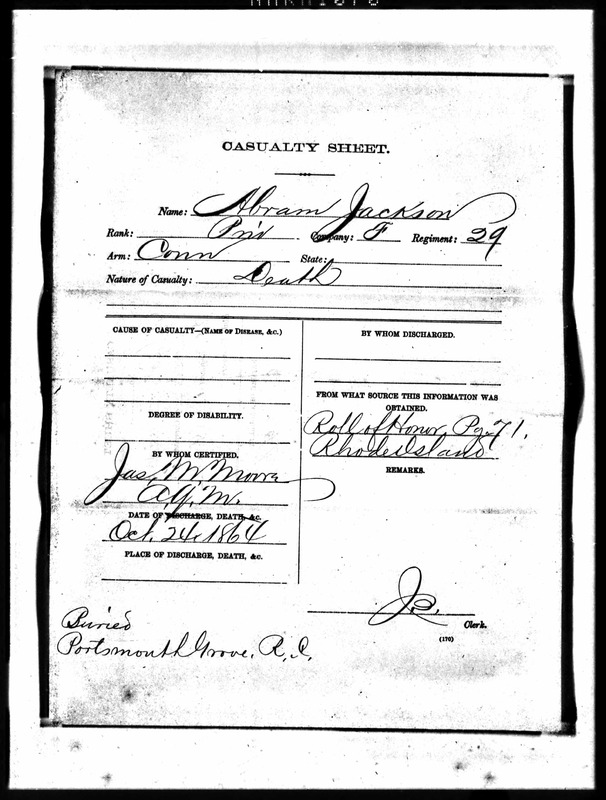 CASUALTY SHEET.
Name: Abram Jackson
Rank: Priv Company: F Regiment: 29
Arm: Conn State:
Nature of Casualty: Death
CAUSE OF CASUALTY—(NAME OF DISEASE, &c.)
BY WHOM DISCHARGED.
FROM WHAT SOURCE THIS INFORMATION WAS
OBTAINED.
DEGREE OF DISABILITY.
Roll of Honor, Pg. 71.
Rhode Island
BY WHOM CERTIFIED.
Jas. M. Moore
A.Q.M.
REMARKS.
DATE OF DISCHARGE, DEATH, &c.
Oct. 24, 1864
PLACE OF DISCHARGE, DEATH, &c.
Clerk.
(170)
Buried
Portsmouth Grove, R.I.